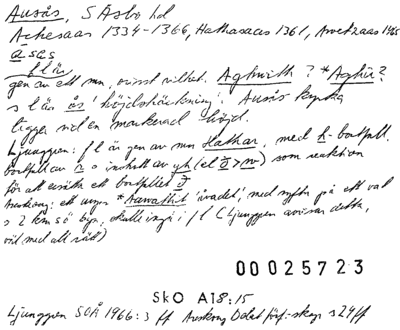 Ausås, S Åsbo hd
Achesaas 1334-1366, Hathasaas 1361, Awetzaas 1465
asås
f l är
gen av ett mn, ovisst vilket. Aghwith? *Aghir?
s l är ås 'höjdsträckning'. Ausås kyrka
ligger vid en markerad höjd.
Ljunggren: f l är gen av mn Hathar, med h-bortfall,
bortfall av r o inskott av gh (el ð > w) som reaktion
för att ersätta ett bortfallet ð
Areskoug: ett urspr *Aawathit 'åvadet', med syftn på ett vad
s 2 km sö byn, skulle ingå i f l (Ljunggren avvisar detta,
vill med allt rätt)
00025723
SkO A18:15
Ljunggren SOÅ 1966:3 ff Areskoug Det förf-skogs s 24 ff